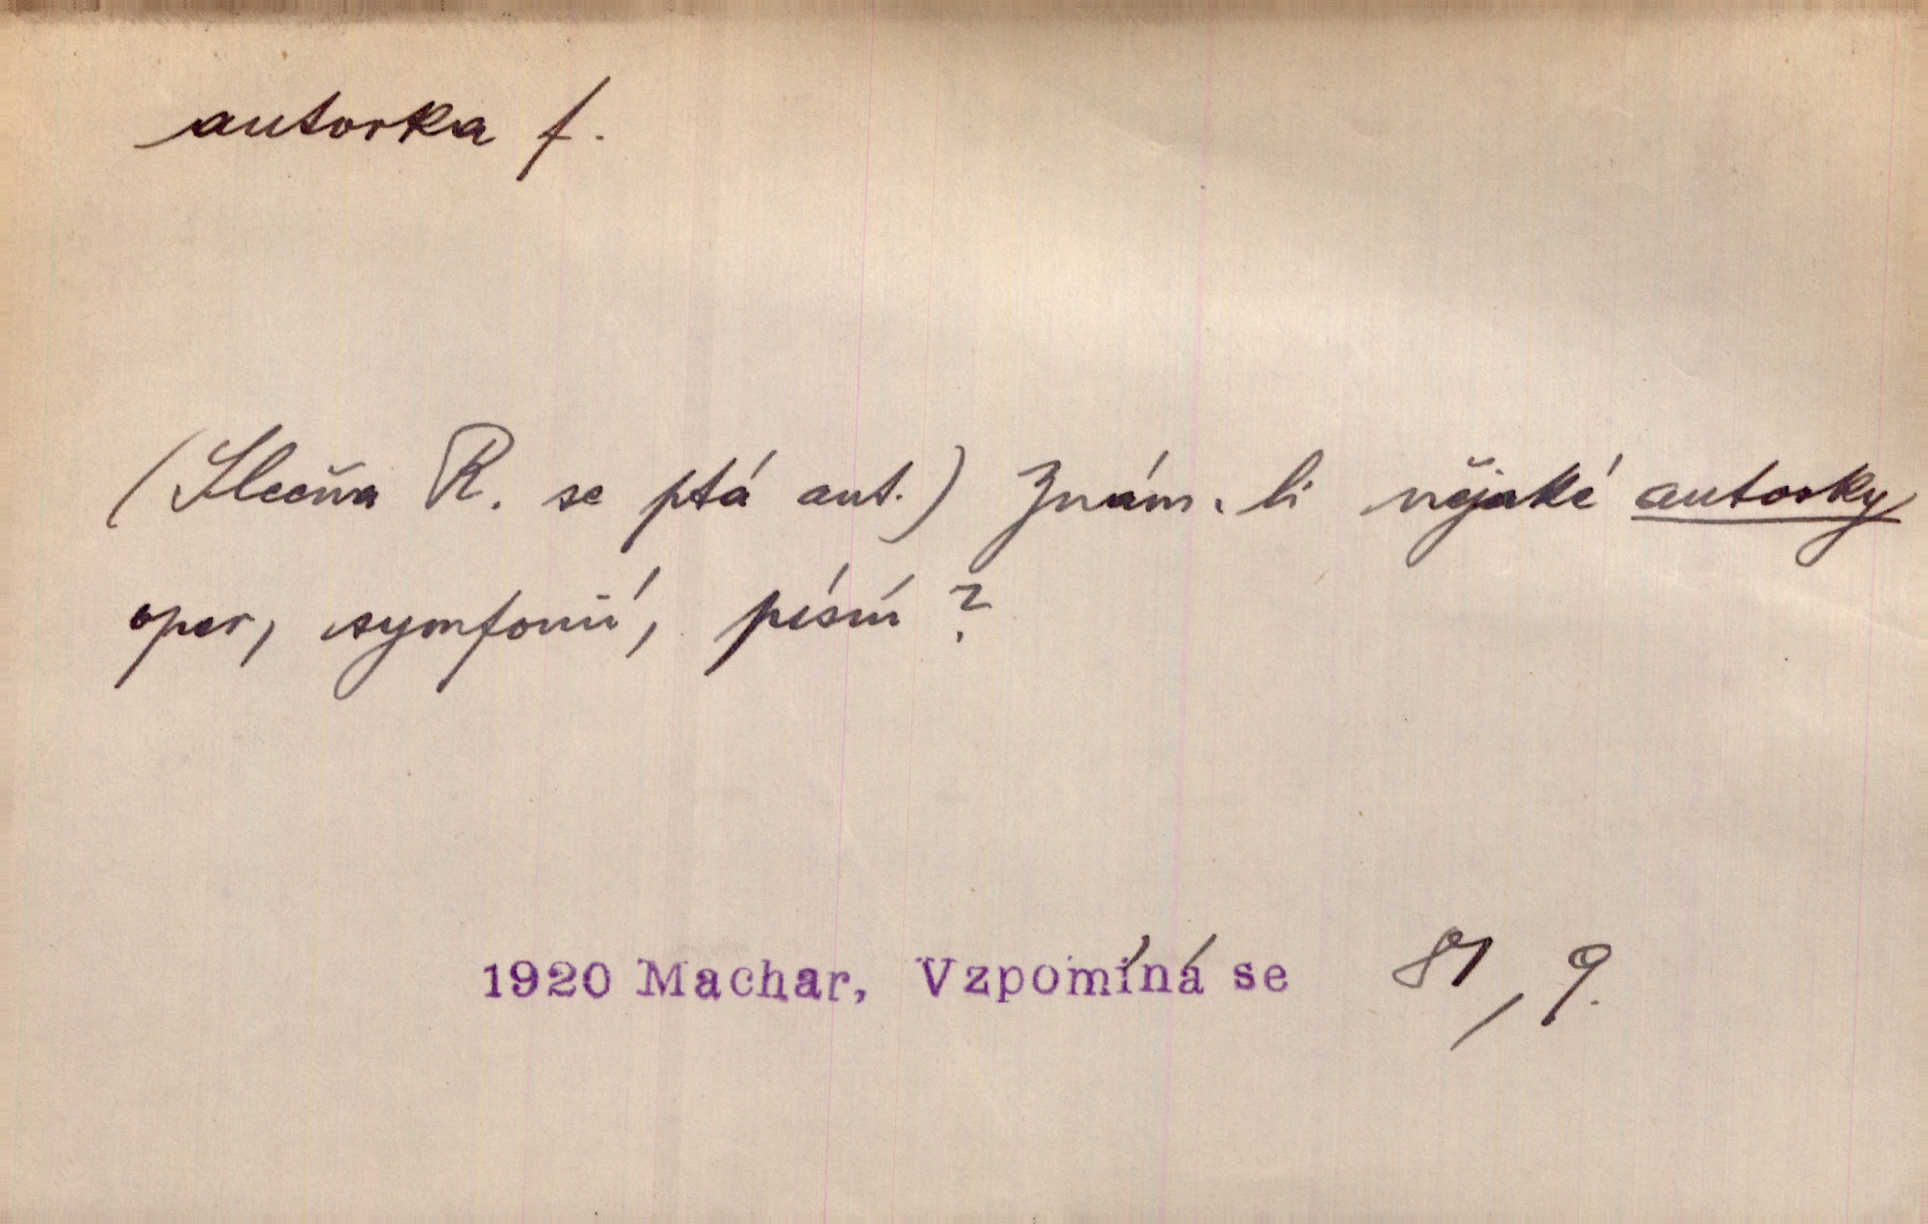 autorka f.
(Slečna R. se ptá aut.) Znám-li nějaké autorky
oper, symfonií, písní?
1920 Machar, Vzpomíná se 81, 9.